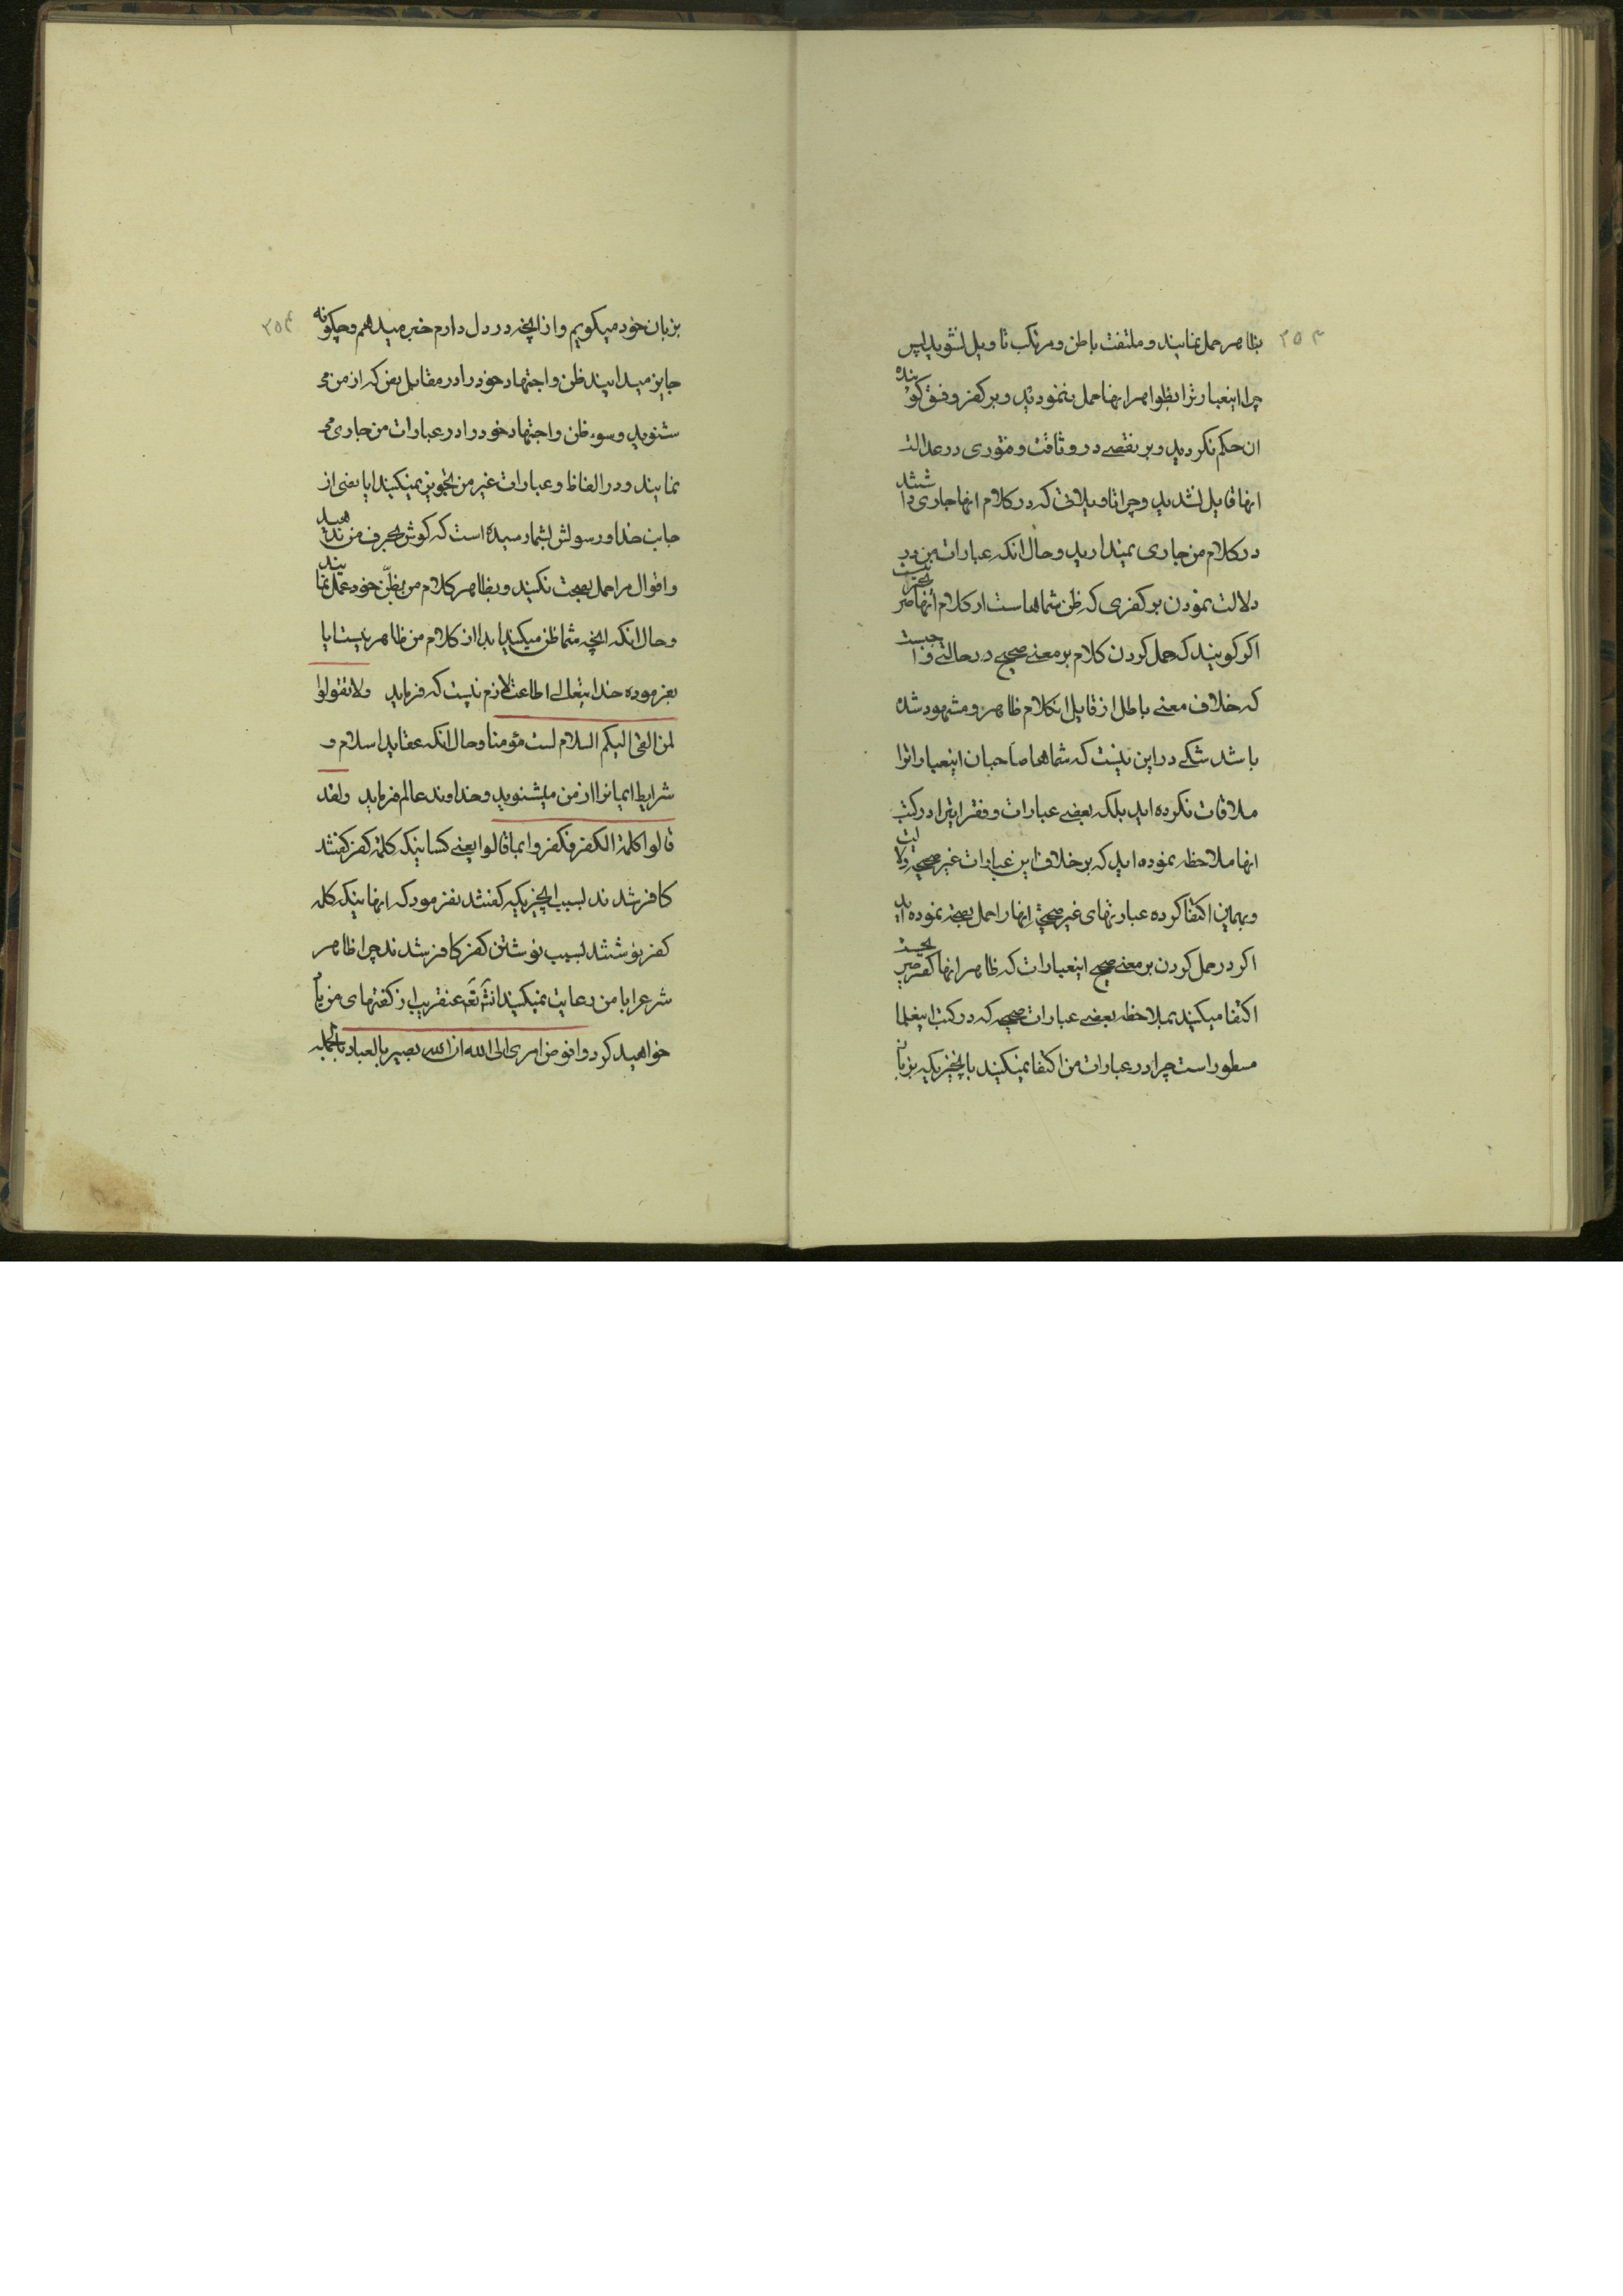 ۲۵۳
بظاهر حمل نمائیند و ملتفت باطن و مرتکب تاویل نشوید پس
چرا اینعبارترا بظواهر انها حمل ننمودید و بر کفر و فسق کوینده
ان حکم نکردید و بر نقصے در وثاقت و فتوری در عدالت
انها قایل نشدید و چرا تاویلاتی که در کلام انها جاری داشتند
در کلام من جاری نمیدارید و حال انکه عبارات من در
دلالت نمودن بر کفری که ظن شماهاست از کلام انها صریحتر نیست
اکر کویند که حمل کردن کلام بر معنے صحیح در حالتی واجبست
که خلاف معنے باطل از قایل انکلام ظاهر و مشهود شده
باشد شکے در این نیست که شماها صاحبان اینعباراترا
ملاقات نکرده اید بلکه بعضے عبارات و فقراتیرا در کتب
انها ملاحظه نموده اید که بر خلاف این عبارات غیر صحیحه دلالت
و بهمین اکتفا کرده عبارتهای غیر صحیحۀ انها را حمل بصحة نموده اید
اکر در حمل کردن بر معنے صحیح اینعبارات که ظاهر انها کفر صریحست
اکتفا میکنید بملاحظه بعضے عبارات صحیحه که در کتب اینعلما
مسطور است چرا در عبارات من اکتفا نمیکنید بانچیزیکه بزبان
۲۵۴
بزبان خود میکویم و از انچه در دل دارم خبر میدهم و چکونه
جایز میدانید ظن و اجتهاد خود را در مقابل نص که از من می
شنوید و سوء ظن و اجتهاد خود را در عبارات من جاری می
نمایند و در الفاظ و عبارات غیر من تجویز نمیکنید ایا نصی از
جانب خدا و رسولش بشما رسیده است که کوش بحرف من ندهید
و اقوال مرا حمل بصحت نکنید و بظاهر کلام من بظنّ خود عمل نمائید
و حال انکه انچه شما ظن میکنید ابدا از کلام من ظاهر نیست ایا
بفرموده خدایتعالے اطاعت لازم نیست که فرماید ولا تقولوا
لمن القی الیکم السلام لست مؤمنا و حال انکه عقاید اسلام و
شرایط ایمانرا از من میشنوید و خداوند عالم فرماید ولقد
قالوا کلمة الکفر فکفروا بما قالوا یعنے کسانیکه کلمۀ کفر کفتند
کافر شدند بسبب انچیزیکه کفتند نفرمود که انهائیکه کلمه
کفر نوشتند بسبب نوشتن کفر کافر شدند چرا ظاهر
شرعرا با من رعایت نمیکنید انشۀ تعۀ عنقریب از کفتهای من یاد
خواهید کرد وافوض امری الی الله ان الله بصیر بالعباد بالجمله